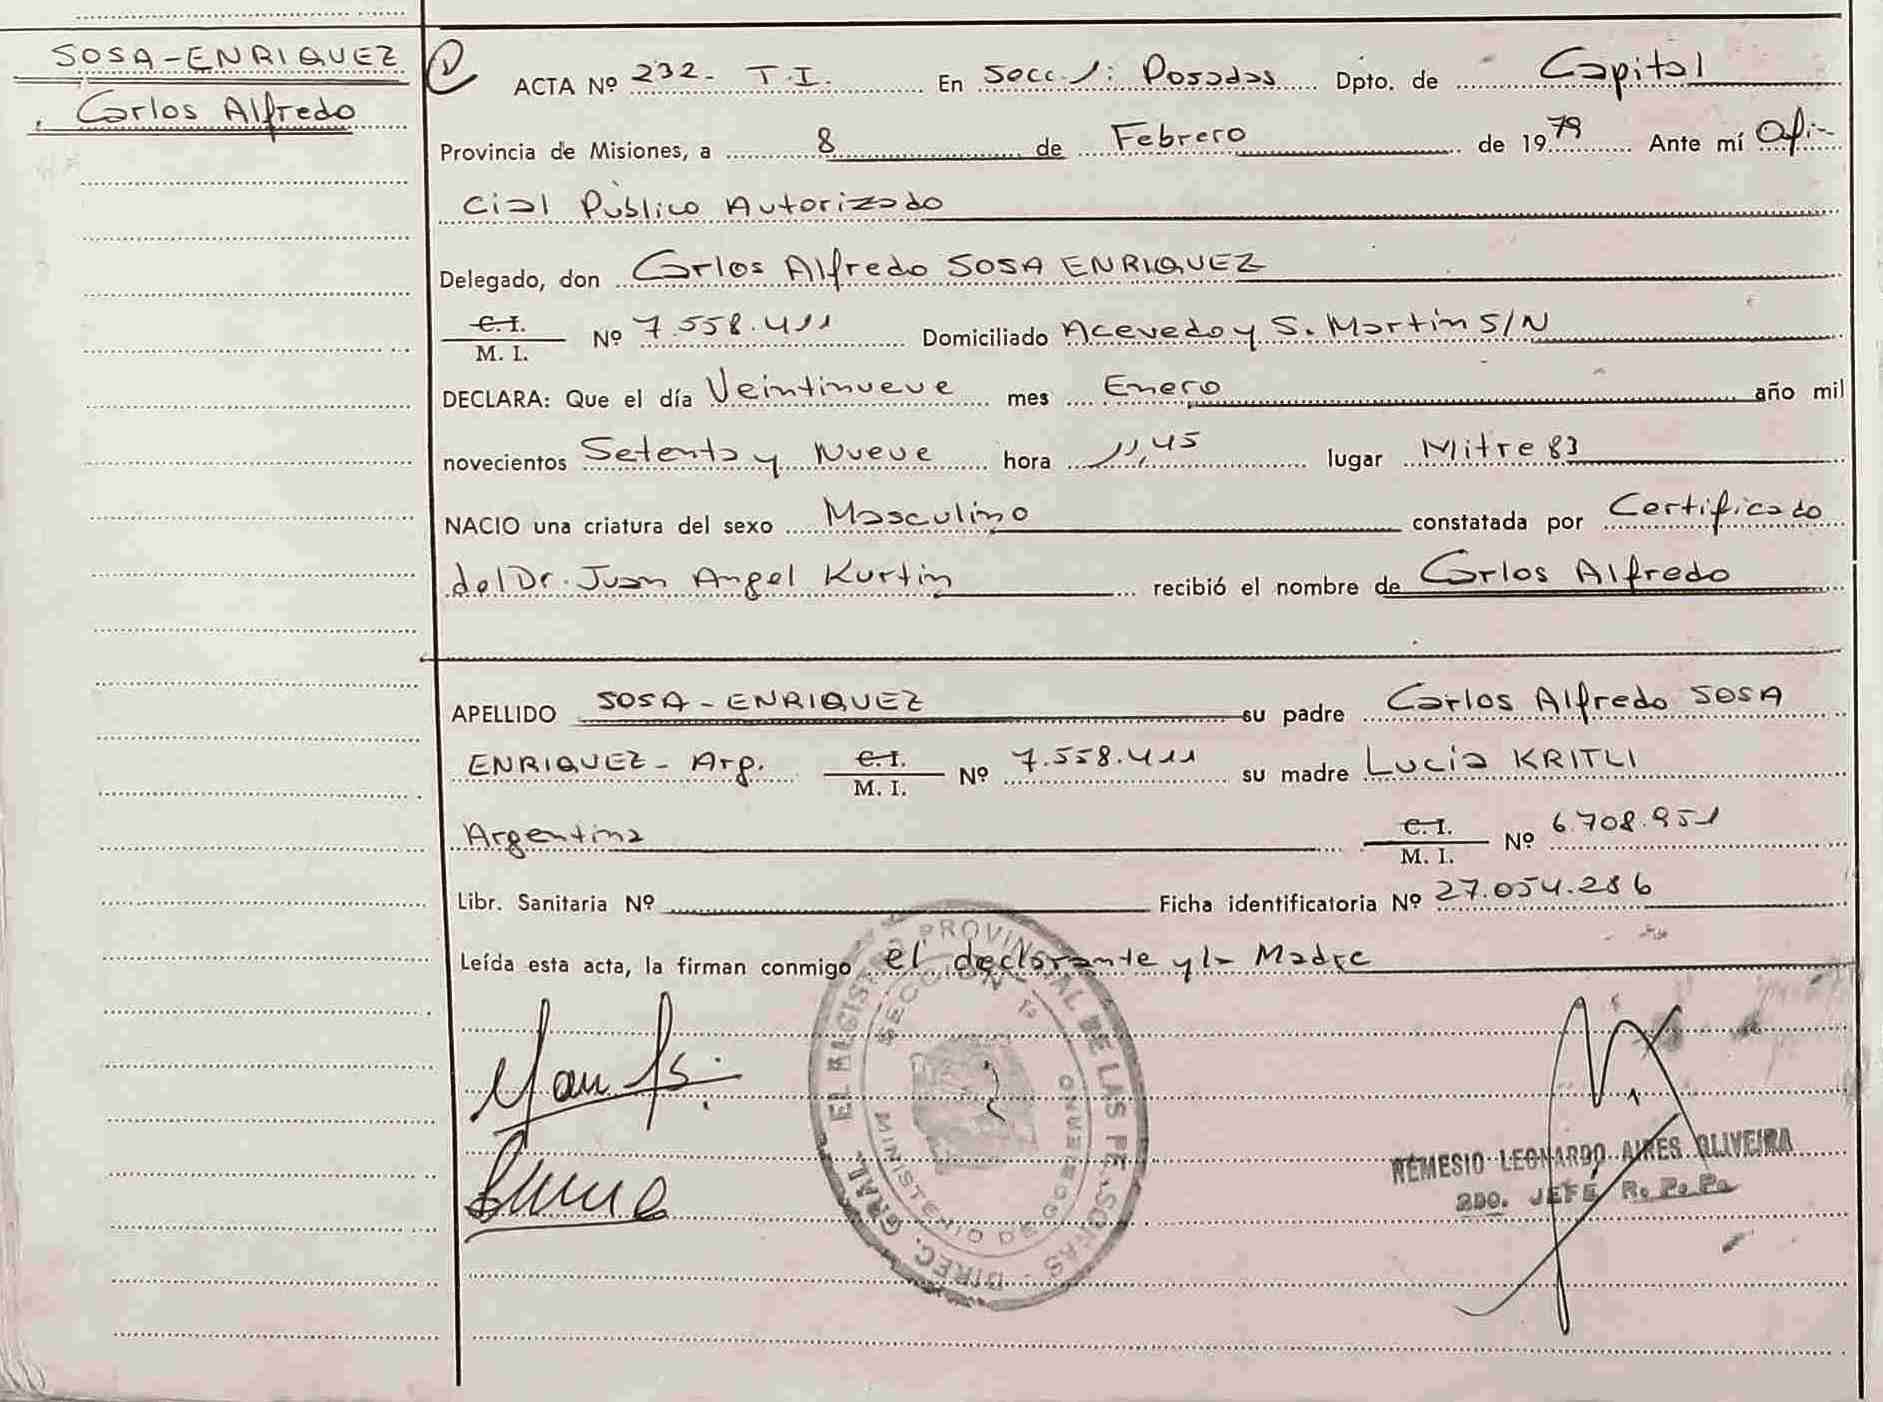 SOSA-ENRIQUEZ
Carlos Alfredo
ACTA Nº 232- T.I. En Secc. 1: Posadas Dpto. de Capital
Provincia de Misiones, a 8 de Febrero de 1979 Ante mí Ofi-
cial Público Autorizado
Delegado, don Carlos Alfredo SOSA ENRIQUEZ
C. I.
M. I. Nº 7.558.411 Domiciliado Acevedo y S. Martin S/N
DECLARA: Que el día Veintinueve mes Enero año mil
novecientos Setenta y Nueve hora 11,45 lugar Mitre 83
NACIO una criatura del sexo Masculino constatada por Certificado
del Dr. Juan Angel Kurtin recibió el nombre de Carlos Alfredo
APELLIDO SOSA - ENRIQUEZ su padre Carlos Alfredo SOSA
ENRIQUEZ - Arg. C. I.
M. I. Nº 7.558.411 su madre Lucia KRITLI
Argentina C. I.
M. I. Nº 6.708.951
Libr. Sanitaria Nº Ficha identificatoria Nº 27.054.286
Leída esta acta, la firman conmigo el declarante y la Madre
DIREC. GRAL. EL REGISTRO PROVINCIAL DE LAS PERSONAS
SECCION 1ª
MINISTERIO DE GOBIERNO
REMESIO LEONARDO AIRES OLIVEIRA
2DO. JEFE R. P. Ps.